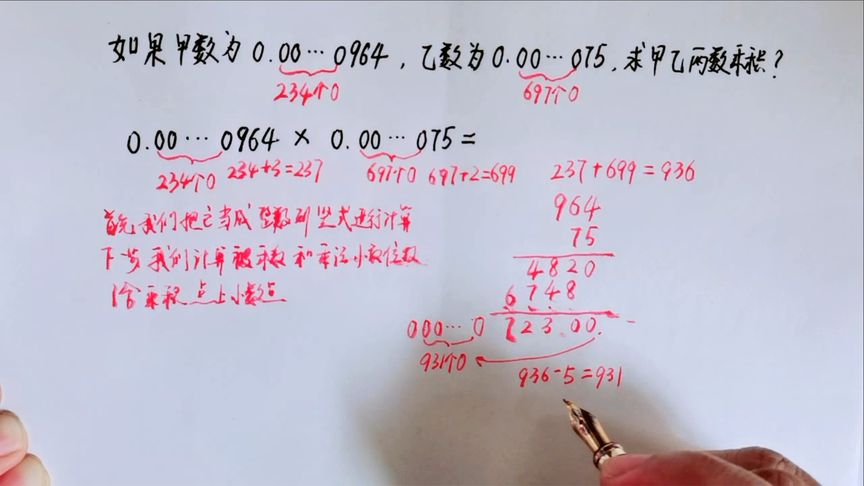 如果甲数为0.00…0964，乙数为0.00…075，求甲乙两数乘积？
234个0 697个0
0.00…0964 × 0.00…075=
234个0 234+3=237 697个0 697+2=699 237+699=936
首先我们把它当成整数列竖式进行计算
下步我们计算被乘数和乘法小数位数
给乘积点上小数点
964
75
4820
6748
000…0 72300.
931个0
936-5=931